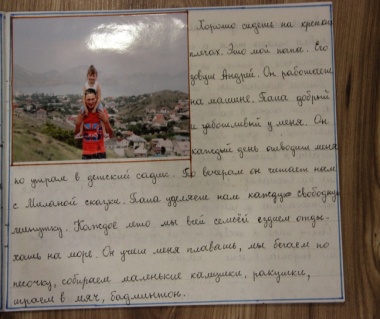 Хорошо сидеть на крепких
плечах. Это мой папа. Его
зовут Андрей. Он работает
на машине. Папа добрый
и заботливый у меня. Он
каждый день отводит меня
по утрам в детский садик. По вечерам он читает нам
с Миланой сказки. Папа уделяет нам каждую свободную
минутку. Каждое лето мы всей семьёй ездием отды-
хать на море. Он учит меня плавать, мы бегаем по
песочку, собираем маленькие камушки, ракушки,
играем в мяч, бадминтон.